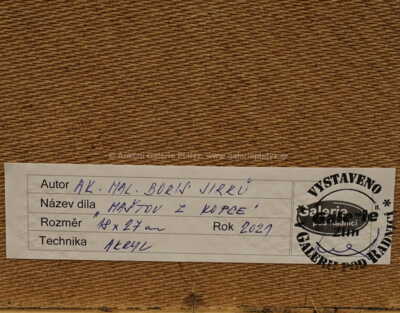 © Aukční Galerie Platýz, www.galerieplatyz.cz
Autor AK. MAL. BORIS JIRKŮ
Název díla "MAŠŤOV Z KOPCE"
Rozměr 18 x 27 cm Rok 2021
Technika AKRYL
VYSTAVENO
Galerie
Zlín
GALERII POD RADNICÍ